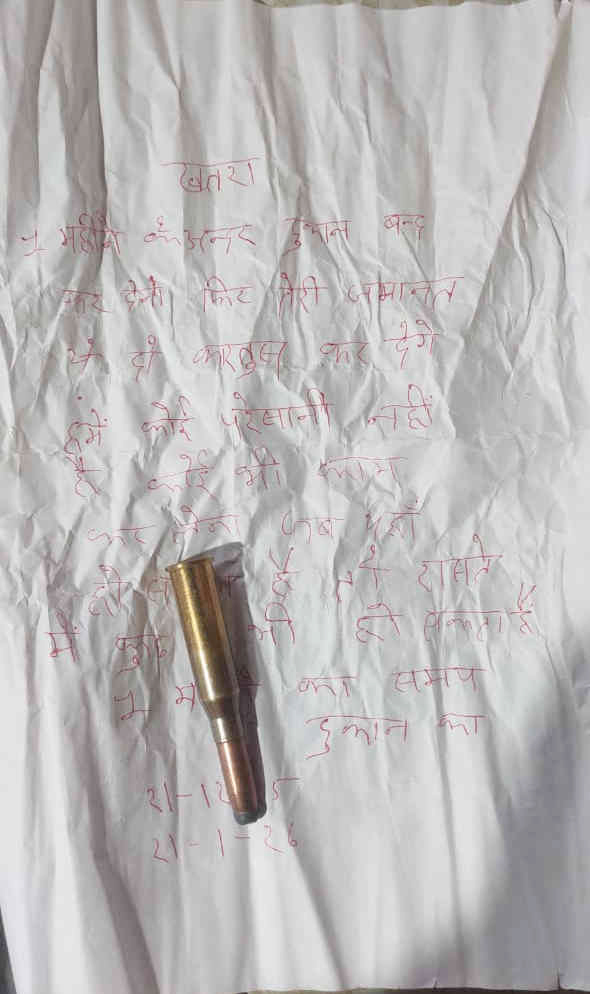 खतरा
1 महीने के अन्दर दुकान बन्द
कर देना फिर तेरी जमानत
ये दो कारतुस कर देगे
हमें कोई परेसानी नहीं
है कोई भी काम
कर लेना जब यहाँ
हो है रास्ते
में कुछ भी हो सकता है
1 का समय
दुकान का
21-12 5
21-1-26